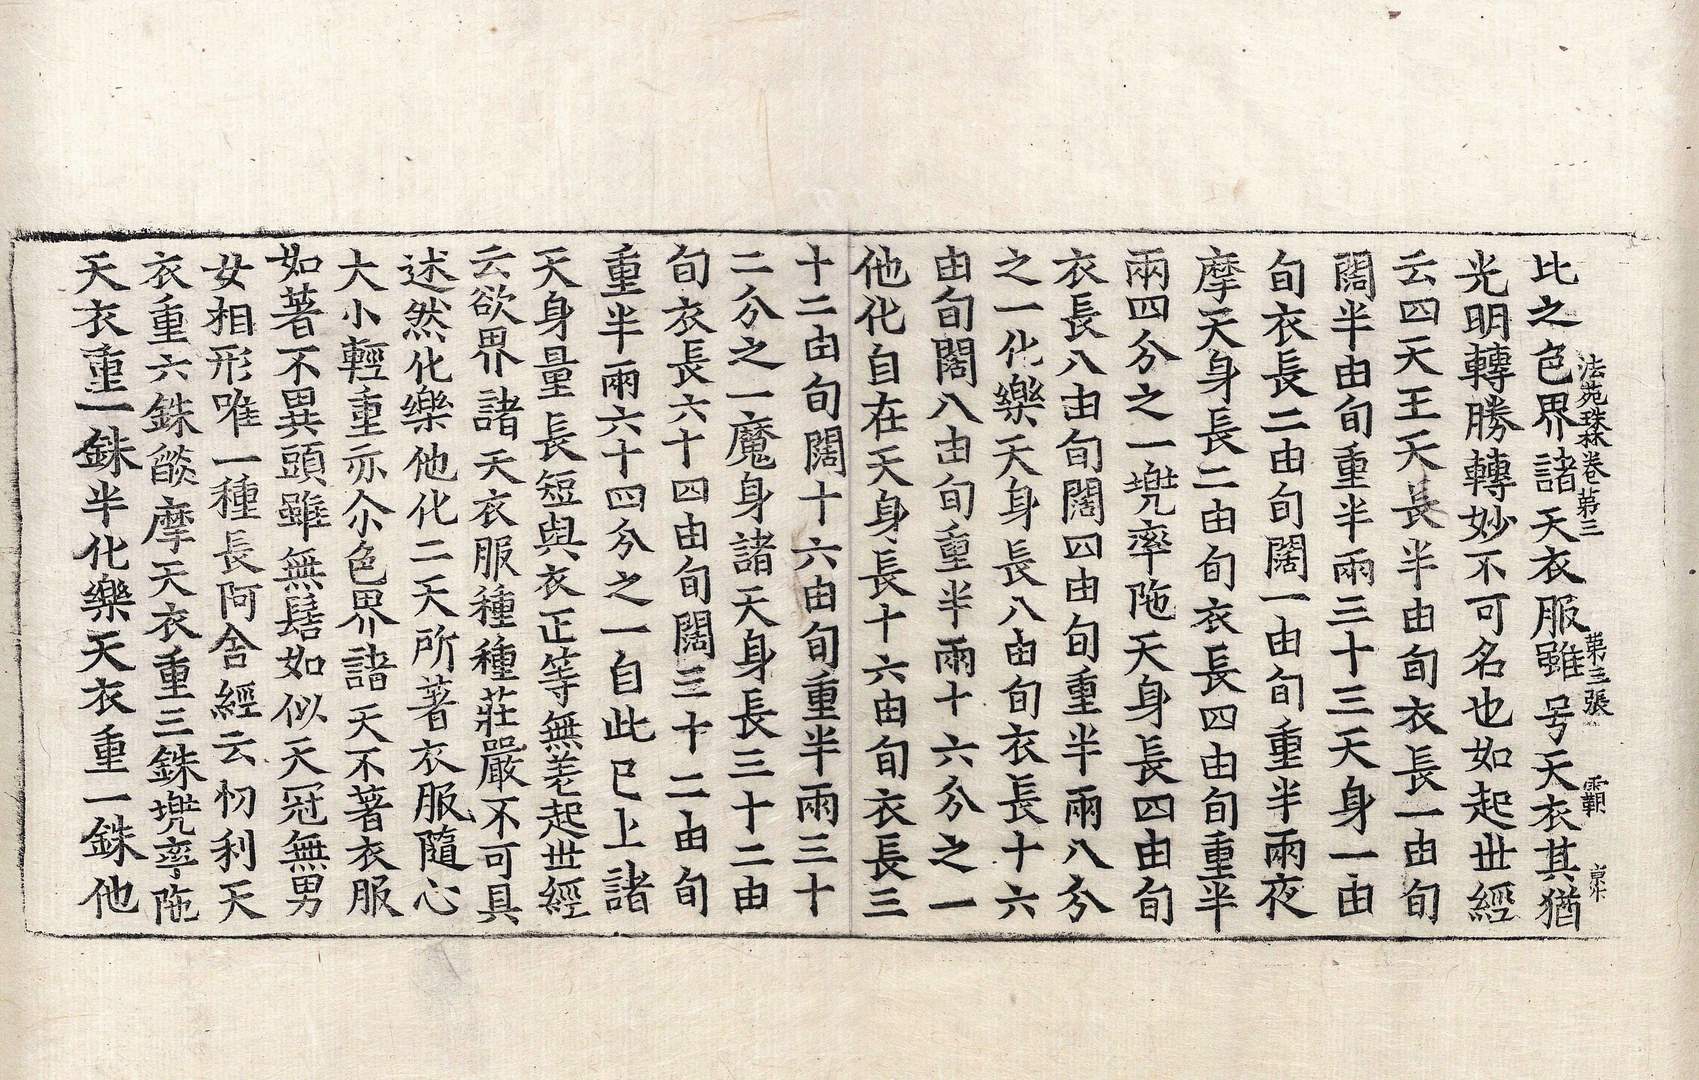 法苑珠林卷第三 第三張 霸
此之色界諸天衣服雖号天衣其猶
光明轉勝轉妙不可名也如起世經
云四天王天長半由旬衣長一由旬
闊半由旬重半兩三十三天身一由
旬衣長二由旬闊一由旬重半兩夜
摩天身長二由旬衣長四由旬重半
兩四分之一兠率陁天身長四由旬
衣長八由旬闊四由旬重半兩八分
之一化樂天身長八由旬衣長十六
由旬闊八由旬重半兩十六分之一
他化自在天身長十六由旬衣長三
十二由旬闊十六由旬重半兩三十
二分之一魔身諸天身長三十二由
旬衣長六十四由旬闊三十二由旬
重半兩六十四分之一自此已上諸
天身量長短與衣正等無差起世經
云欲界諸天衣服種種莊嚴不可具
述然化樂他化二天所著衣服隨心
大小輕重亦尒色界諸天不著衣服
如著不異頭雖無髻如似天冠無男
女相形唯一種長阿含經云忉利天
衣重六銖燄摩天衣重三銖兠率陁
天衣重一銖半化樂天衣重一銖他